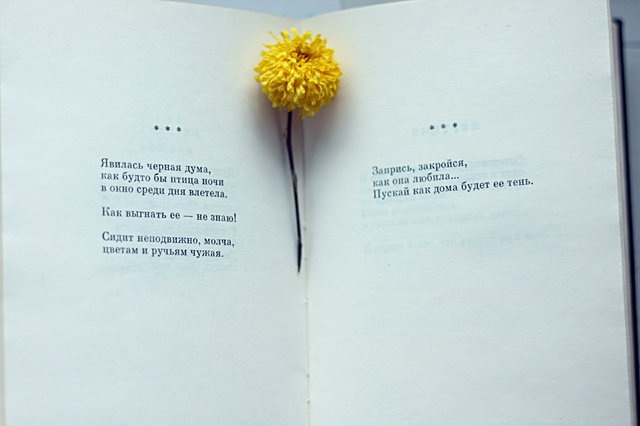 * * *
Явилась черная дума,
как будто бы птица ночи
в окно среди дня влетела.
Как выгнать ее — не знаю!
Сидит неподвижно, молча,
цветам и ручьям чужая.
* * *
Запрись, закройся,
как она любила...
Пускай как дома будет ее тень.